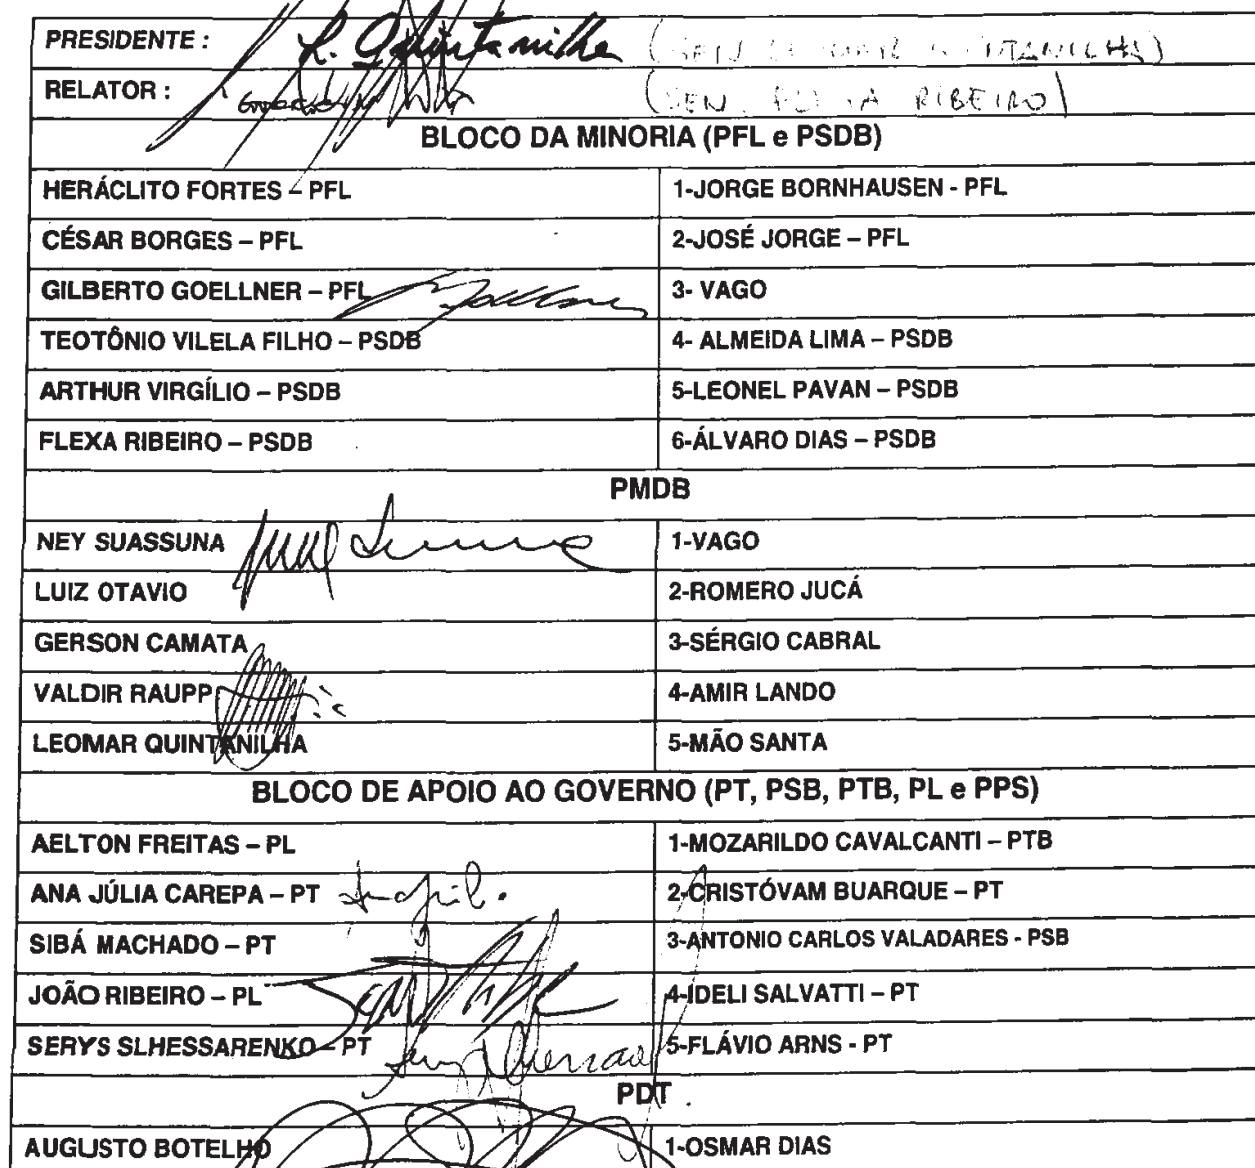 PRESIDENTE : L. Quintanilha (SEN QUINTANILHA)
RELATOR : (SEN. RIBEIRO)
BLOCO DA MINORIA (PFL e PSDB)
HERÁCLITO FORTES – PFL 1-JORGE BORNHAUSEN - PFL
CÉSAR BORGES – PFL 2-JOSÉ JORGE – PFL
GILBERTO GOELLNER – PFL 3- VAGO
TEOTÔNIO VILELA FILHO – PSDB 4- ALMEIDA LIMA – PSDB
ARTHUR VIRGÍLIO – PSDB 5-LEONEL PAVAN – PSDB
FLEXA RIBEIRO – PSDB 6-ÁLVARO DIAS – PSDB
PMDB
NEY SUASSUNA 1-VAGO
LUIZ OTAVIO 2-ROMERO JUCÁ
GERSON CAMATA 3-SÉRGIO CABRAL
VALDIR RAUPP 4-AMIR LANDO
LEOMAR QUINTANILHA 5-MÃO SANTA
BLOCO DE APOIO AO GOVERNO (PT, PSB, PTB, PL e PPS)
AELTON FREITAS – PL 1-MOZARILDO CAVALCANTI – PTB
ANA JÚLIA CAREPA – PT 2-CRISTÓVAM BUARQUE – PT
SIBÁ MACHADO – PT 3-ANTONIO CARLOS VALADARES - PSB
JOÃO RIBEIRO – PL 4-IDELI SALVATTI – PT
SERYS SLHESSARENKO – PT 5-FLÁVIO ARNS - PT
PDT
AUGUSTO BOTELHO 1-OSMAR DIAS